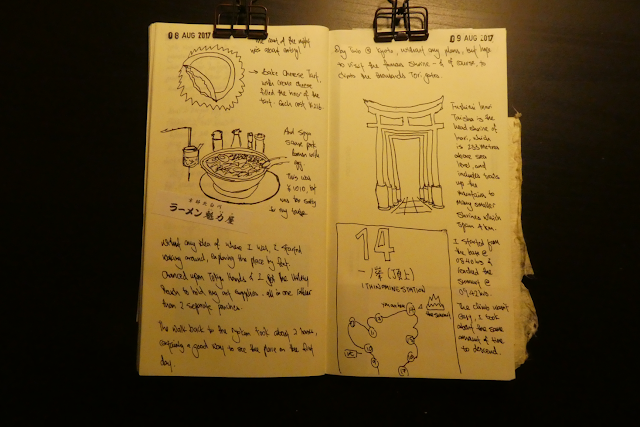 08 AUG 2017
The rest of the night
was about eating!
→ Bake Cheese Tart,
with cream cheese
filled the hear of the
tart. Each cost
And Soya
Sauce pork
Ramen with
egg
This was
¥1010, but
was too salty
to my taste.
ラーメン魅力屋
Without any idea of where I was, I started
walking around, exploring the place by foot.
Chanced upon Tokyu Hands & I got the
to hold my art supplies. all in one rather
than 2 separate pouches.
The walk back to the took about 2 hours,
a good way to see the place on the first
day.
09 AUG 2017
Day Two @ Kyoto, without any plans, but hope
to visit the famous Shrine - & of course, to
climb the thousands Tori gates.
Fushimi Inari
Taisha is the
head shrine of
Inari, which
is 233 metres
above sea
level, and
includes trails
up the
mountain to
many smaller
shrines which
span 4 km.
I started from
the base @
0840hrs &
reached the
Summit @
0942hrs.
The climb wasn't
easy, I took
about the same
amount of time
to descend.
14
一ノ峯(頂上)
ICHINOMINE STATION
You are here
the summit